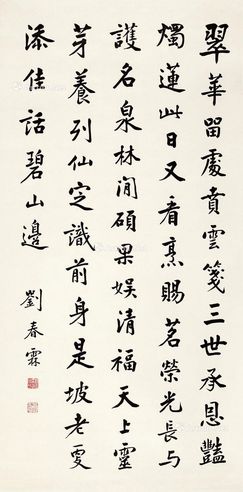 翠華留處賁雲箋三世承恩豔
燭蓮此日又看烹賜茗榮光長与
護名泉林間碩果娛清福天上靈
芽養列仙定識前身是坡老更
添佳話碧山邊
劉春霖